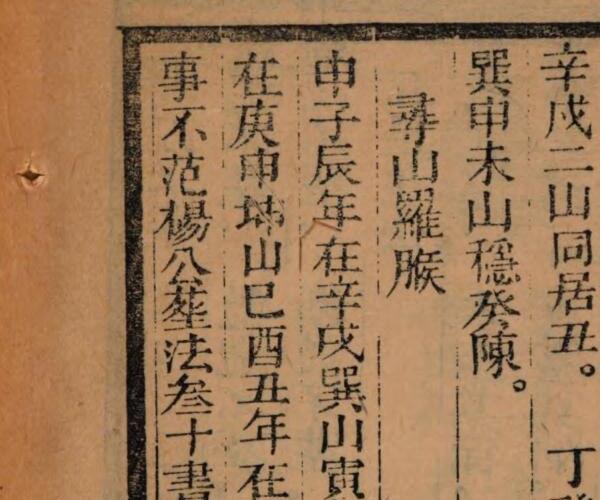 辛戌二山同居丑。　丁
巽申未山穩癸陳。
尋山羅睺
申子辰年在辛戌巽山寅
在庚申坤山巳酉丑年在
事不范楊公塟法叁十書